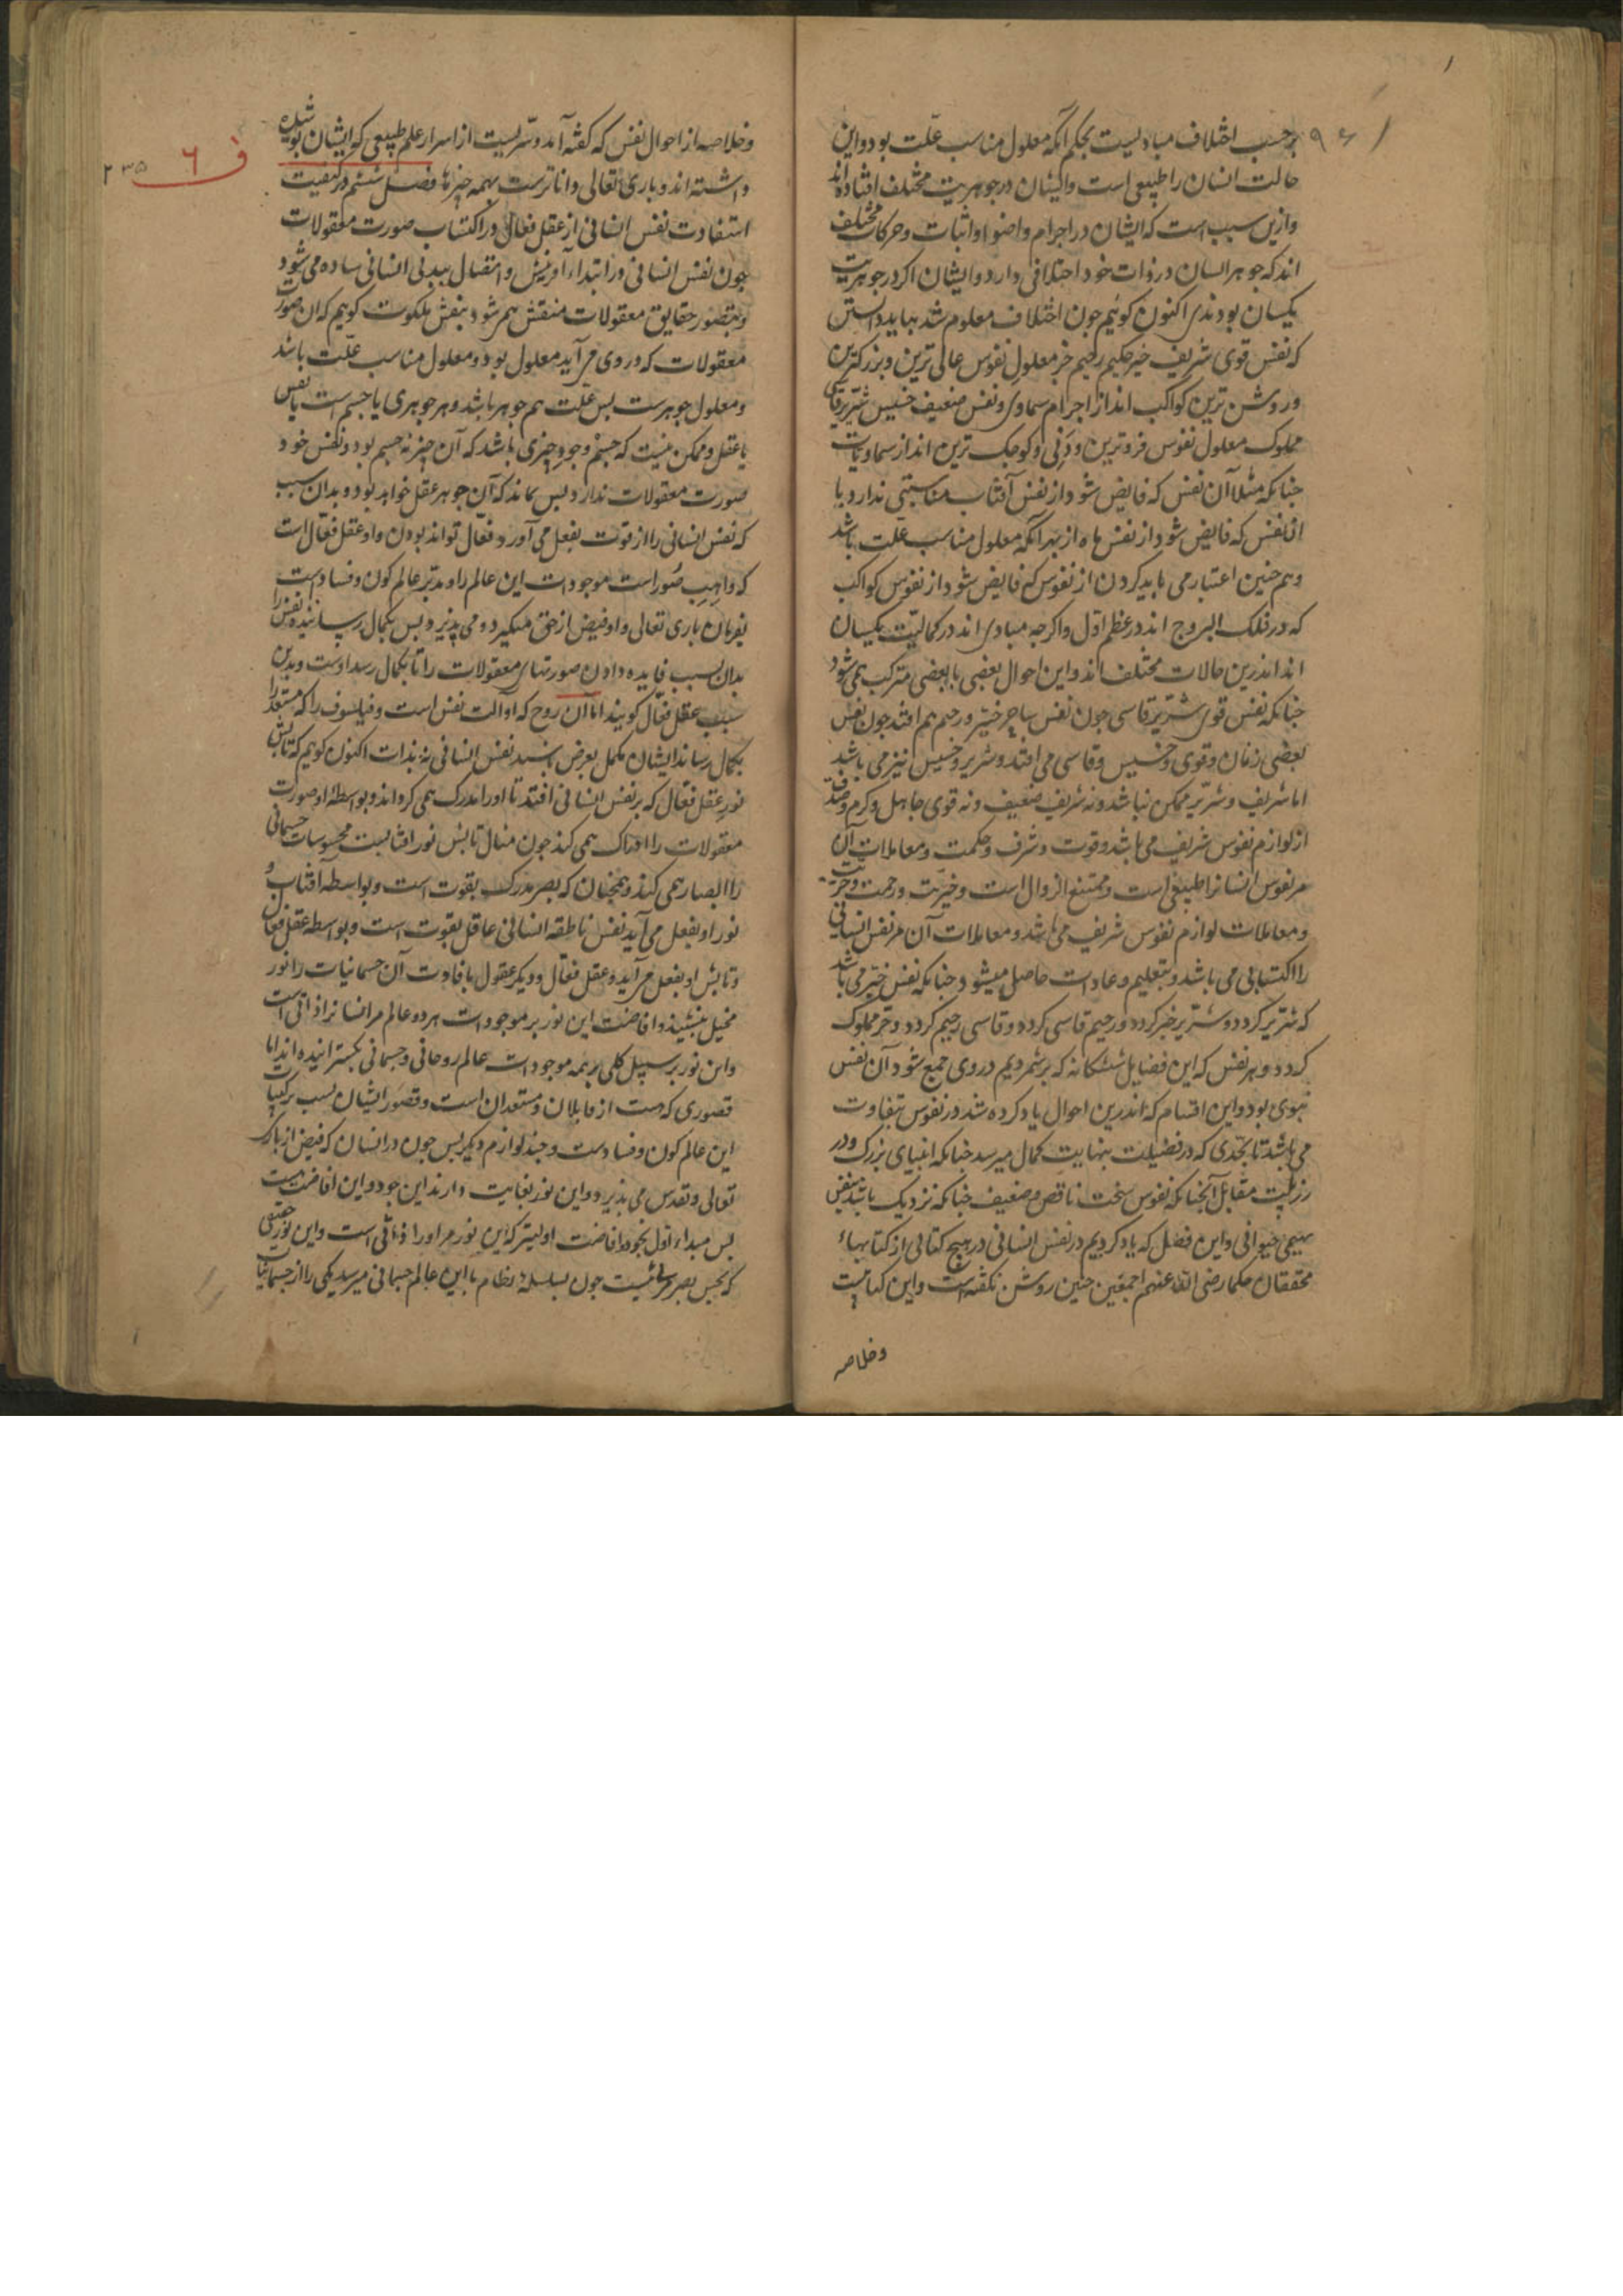 برحسب اختلاف مبادیست بحکم آنکه معلول مناسب علّت بود و این
حالت انسان را طبیعی است و ایشان در جوهریت مختلف افتاده‌اند
و ازین سبب است که ایشان در اجرام و اضوا و اثبات و حرکات مختلف
اند که جوهر انسان در ذوات خود اختلافی دارد و ایشان اکر در جوهریت
یکسان بودندی اکنون کوئیم جون اختلاف معلوم شد بباید دانستن
که نفس قوی شریف خیر حکیم رحیم حر معلول نفوس عالی ترین و بزرکترین
و روشن ترین کواکب اند از اجرام سماوی و نفس ضعیف خسیس شرّیر قاسی
مملوک معلول نفوس فروترین و دَنی و کوجک ترین اند از سماویات
جنانکه مثلا آن نفس که فایض شود از نفس آفتاب مناسبتی ندارد با
ان نفس که فایض شود از نفس ماه از بهر آنکه معلول مناسب علّت باشد
و هم جنین اعتبار می باید کردن از نفوس که فایض شود از نفوس کواکب
که در فلک البروج اند در عظم اوّل و اکرجه مبادی اند در کمالیّت یکسان
اند اندرین حالات مختلف اند و این احوال بعضی با بعضی مترکب همی شود
جنانکه نفس قوی شرّیر قاسی جون نفس خیّر و رحیم هم افتد جون نفس
بعضی زنان و قوی و خسیس و قاسی می افتد و شریر و خسیس نیز می باشد
اما شریف و شرّیر ممکن نباشد و نه شریف ضعیف و نه قوی جاهل و کرم و
از لوازم نفوس شریف می باشد و قوت و شرف و حکمت و معاملات آن
مر نفوس انسانرا طبیعی است و ممتنع الزوال است و خیریت و رحمت و حریت
و معاملات لوازم نفوس شریف می باشد و معاملات آن مر نفس انسانی
را اکتسابی می باشد و بتعلیم و عادات حاصل میشود جنانکه نفس خیّر می باشد
که شرّیر کردد و شرّیر خیر کردد و رحیم قاسی کردد و قاسی رحیم کردد و حرّ مملوک
کردد و هر نفس که این فضایل ششکانه که برشمردیم در وی جمع شود آن نفس
نبوی بود و این اقسام که اندرین احوال یاد کرده شد در نفوس بتفاوت
می باشد تا بحدی که در فضیلت بنهایت کمال میرسد جنانکه انبیای بزرک و در
رذیلت مقابل آنجنانکه نفوس سخت ناقص و ضعیف جنانکه نزدیک باشد بنفس
بهیمی حیوانی و این فصل که یاد کردیم در نفس انسانی در هیج کتابی از کتابهاء
محققان حکما رضی الله عنهم اجمعین جنین روشن نکفته‌است و این کتابیست
وخلاصه
وخلاصه از احوال نفس که کفته آمد و سرّیست از اسرار علم طبیعی که ایشان پوشیده
داشته اند و باری تعالی داناترست بهمه جیزها فصل ششم در کیفیت
استفادت نفس انسانی از عقل فعّال در اکتساب صورت معقولات
جون نفس انسانی در ابتداء آفرینش و اتصال ببدن انسانی ساده می شود
و بتصور حقایق معقولات منقش همی شود بنقش ملکوت کوییم که ان صور
معقولات که در وی می آید معلول بود و معلول مناسب علّت باشد
و معلول جوهرست بس علّت هم جوهر باشد و هر جوهری یا جسم است یا نفس
یا عقل و ممکن نیست که جسم وجود جیزی باشد که آن جیز نه جسم بود و نفس خود
صورت معقولات ندارد بس بماند که آن جوهر عقل خواهد بود و بدان سبب
که نفس انسانی را از قوت بفعل می آورد فعّال تواند بودن و او عقل فعّال است
که واهب صُور است موجودات این عالم را و مدبّر عالم کون و فسادست
بفرمان باری تعالی و او فیض از حق میکیرد و می پذیرد بس بکمال رساننده نفس را
بدان سبب فایده دادن صورتهای معقولات را تا بکمال رسد اوست و بدین
سبب عقل فعّال کویند اما آن روح که او آلت نفس است و فیلسوف را که مستعد را
بکمال رساند ایشان مکمل بعرض باشند نفس انسانی نه بذات اکنون کوییم که تابش
نور عقل فعّال که بر نفس انسانی افتد تا او را مدرک همی کرداند و بواسطهٔ او صورت
معقولات را ادراک همی کند جون مثال تابش نور آفتابست محسوسات جسمانی
را ابصار همی کند و همجنان که بصر مدرک بقوت است و بواسطه آفتاب و
نور او بفعل می آید نفس ناطقه انسانی عاقل بقوت است و بواسطه عقل فعال
و تابش او بفعل می آید و عقل فعّال و دیکر عقول بافادت آن جسمانیات را نور
و افاضت این نور بر موجودات هر دو عالم مر انسانرا ذاتی است
و این نور بر سبیل کلی بر همه موجودات عالم روحانی و جسمانی بکسترانیده اند اما
قصوری که هست از قابلان و مستعدان است و قصور ایشان بسبب ترکیبات
این عالم کون و فسادست و جند لوازم دیکر بس جون در انسان که فیض از باری
تعالی و تقدس می بذیرد و این نور بغایت دارند این جود و این افاضت هست
بس مبداء اوّل بجود و افاضت اولیتر که این نور مر او را ذاتی است و این نور حقیقی
که بحس بصر مرئی نیست جون بسلسلهٔ نظام با این عالم جسمانی میرسد یکی را از جسمانیات
ف ٦
۲۳۵